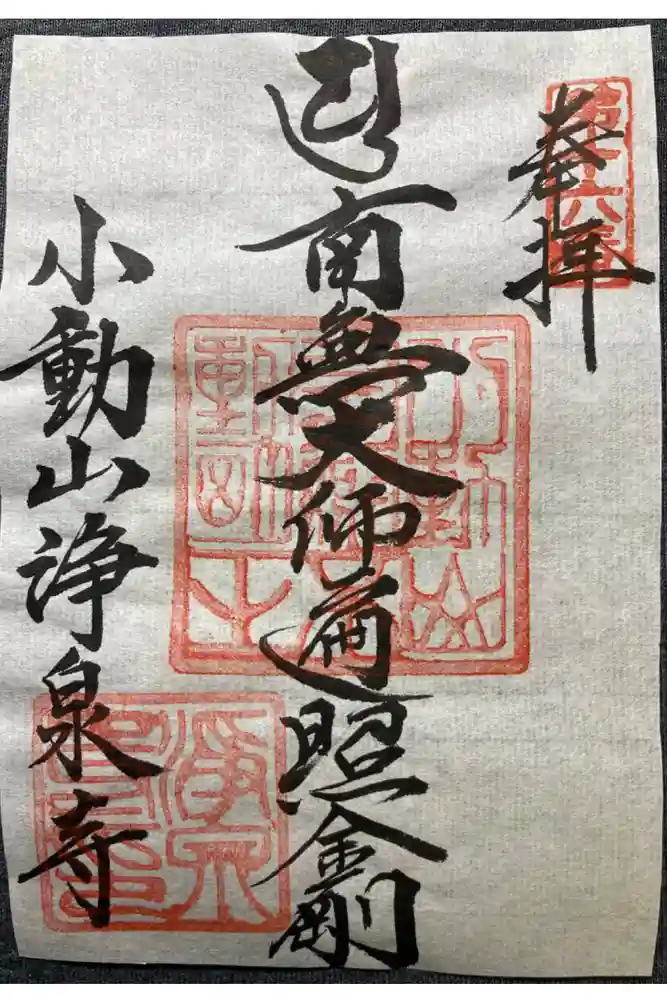 第十六番
奉拝
南無大師遍照金剛
小動山浄泉寺